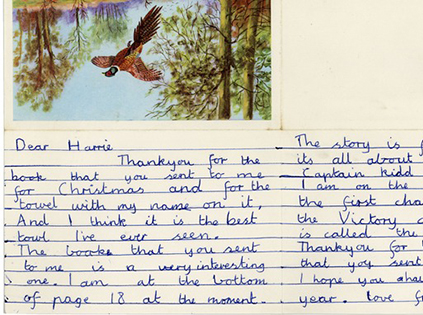 Dear Harrie
Thankyou for the
book that you sent to me
for Christmas and for the
towel with my name on it,
And I think it is the best
towl I've ever seen.
The books that you sent
to me is a very interesting
one. I am at the bottom
of page 18 at the moment.
The story is
its all about
Captain kidd
I am on the
the first cha
the Victory
is called the
Thankyou for
that you sent
I hope you ahav
year. love